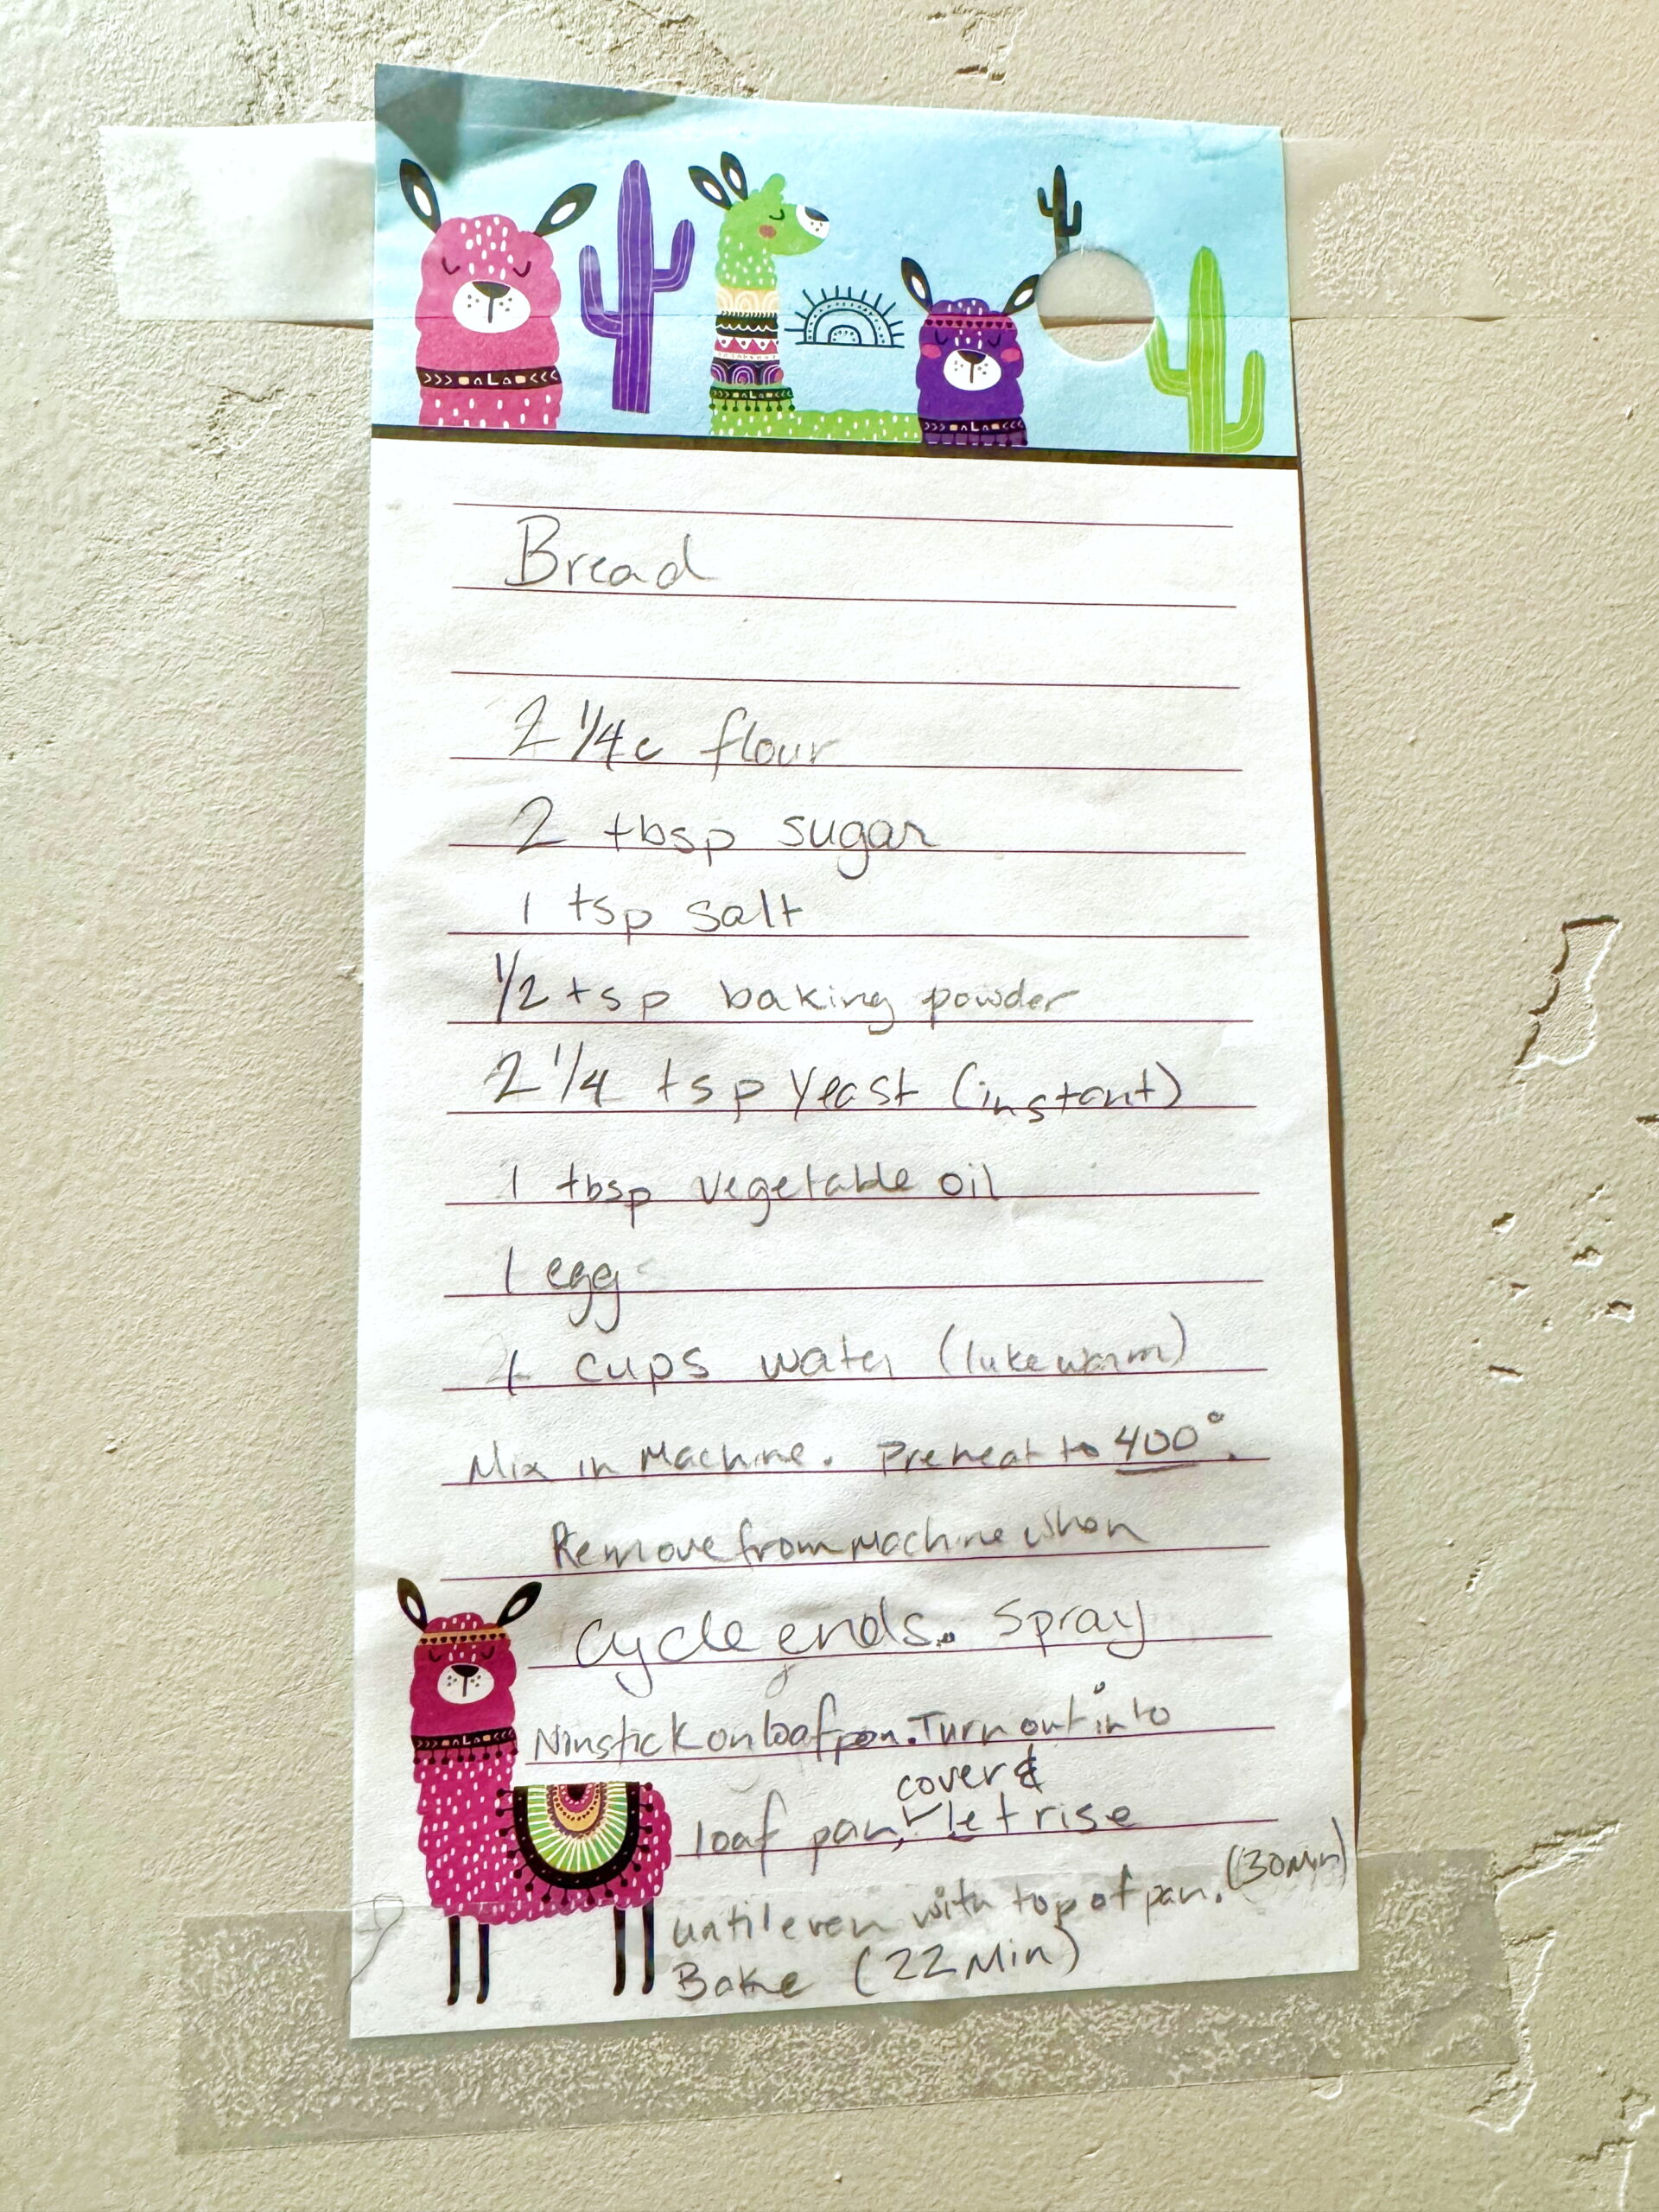 Bread
2 1/4 c flour
2 tbsp sugar
1 tsp salt
1/2 tsp baking powder
2 1/4 tsp yeast (instant)
1 tbsp vegetable oil
1 egg
1 cups water (lukewarm)
Mix in Machine. Preheat to 400°.
Remove from Machine when
cycle ends. Spray
Ninstick on loaf pan. Turn out into
cover &
loaf pan, let rise
until even with top of pan. (30 Min)
Bake (22 Min)